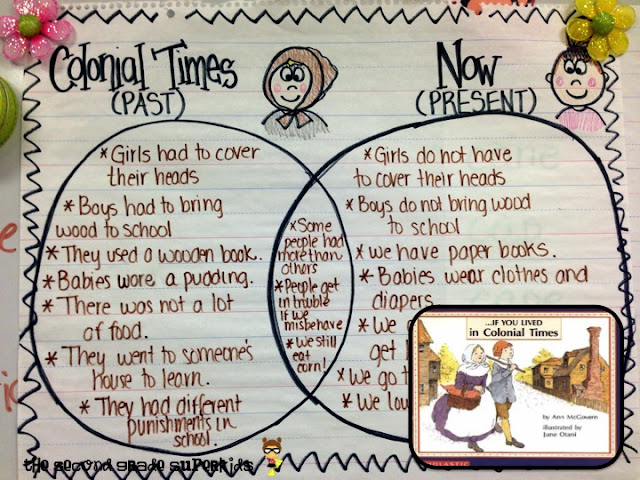 Colonial Times
(PAST)
Now
(PRESENT)
* Girls had to cover
their heads
* Boys had to bring
wood to school
* They used a wooden book.
* Babies wore a pudding.
* There was not a lot
of food.
* They went to someone's
house to learn.
* They had different
punishments in
school.
* Some
people had
more than
others
* People get
in trouble
if we
misbehave
* We still
eat
corn!
* Girls do not have
to cover their heads
* Boys do not bring wood
to school
* We have paper books.
* Babies wear clothes and
diapers.
* We
get
* We go
* We
...IF YOU LIVED
in Colonial Times
by Ann McGovern
illustrated by
June Otani
SCHOLASTIC
the second grade superkids